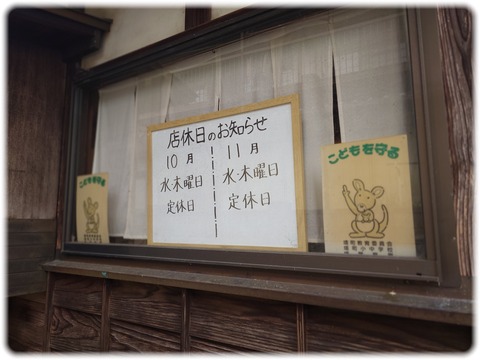 店休日のお知らせ
10月
水・木曜日
定休日
11月
水・木曜日
定休日
こどもを守る
こどもを守る